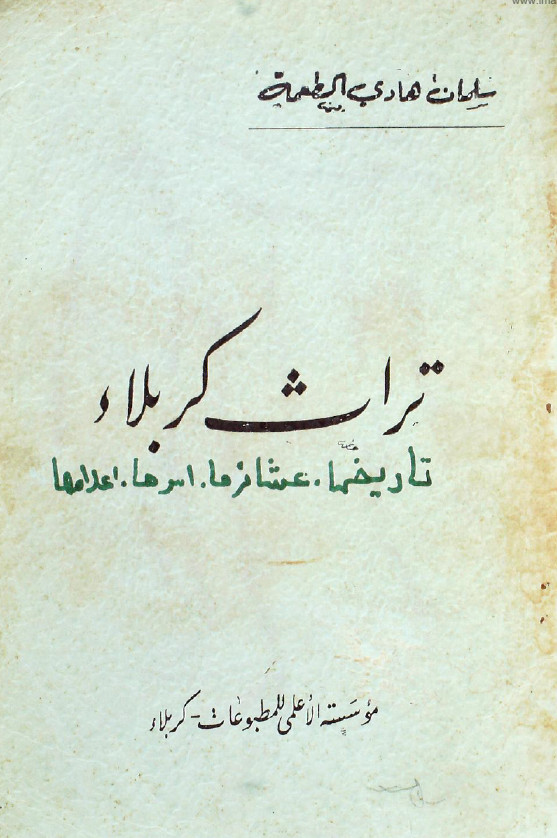 www.ima
سلمان هادي الطعمة
تراث كربلاء
تاريخها. عشائرها. اسرها. اعلامها
مؤسسة الأعلمي للمطبوعات - كربلاء